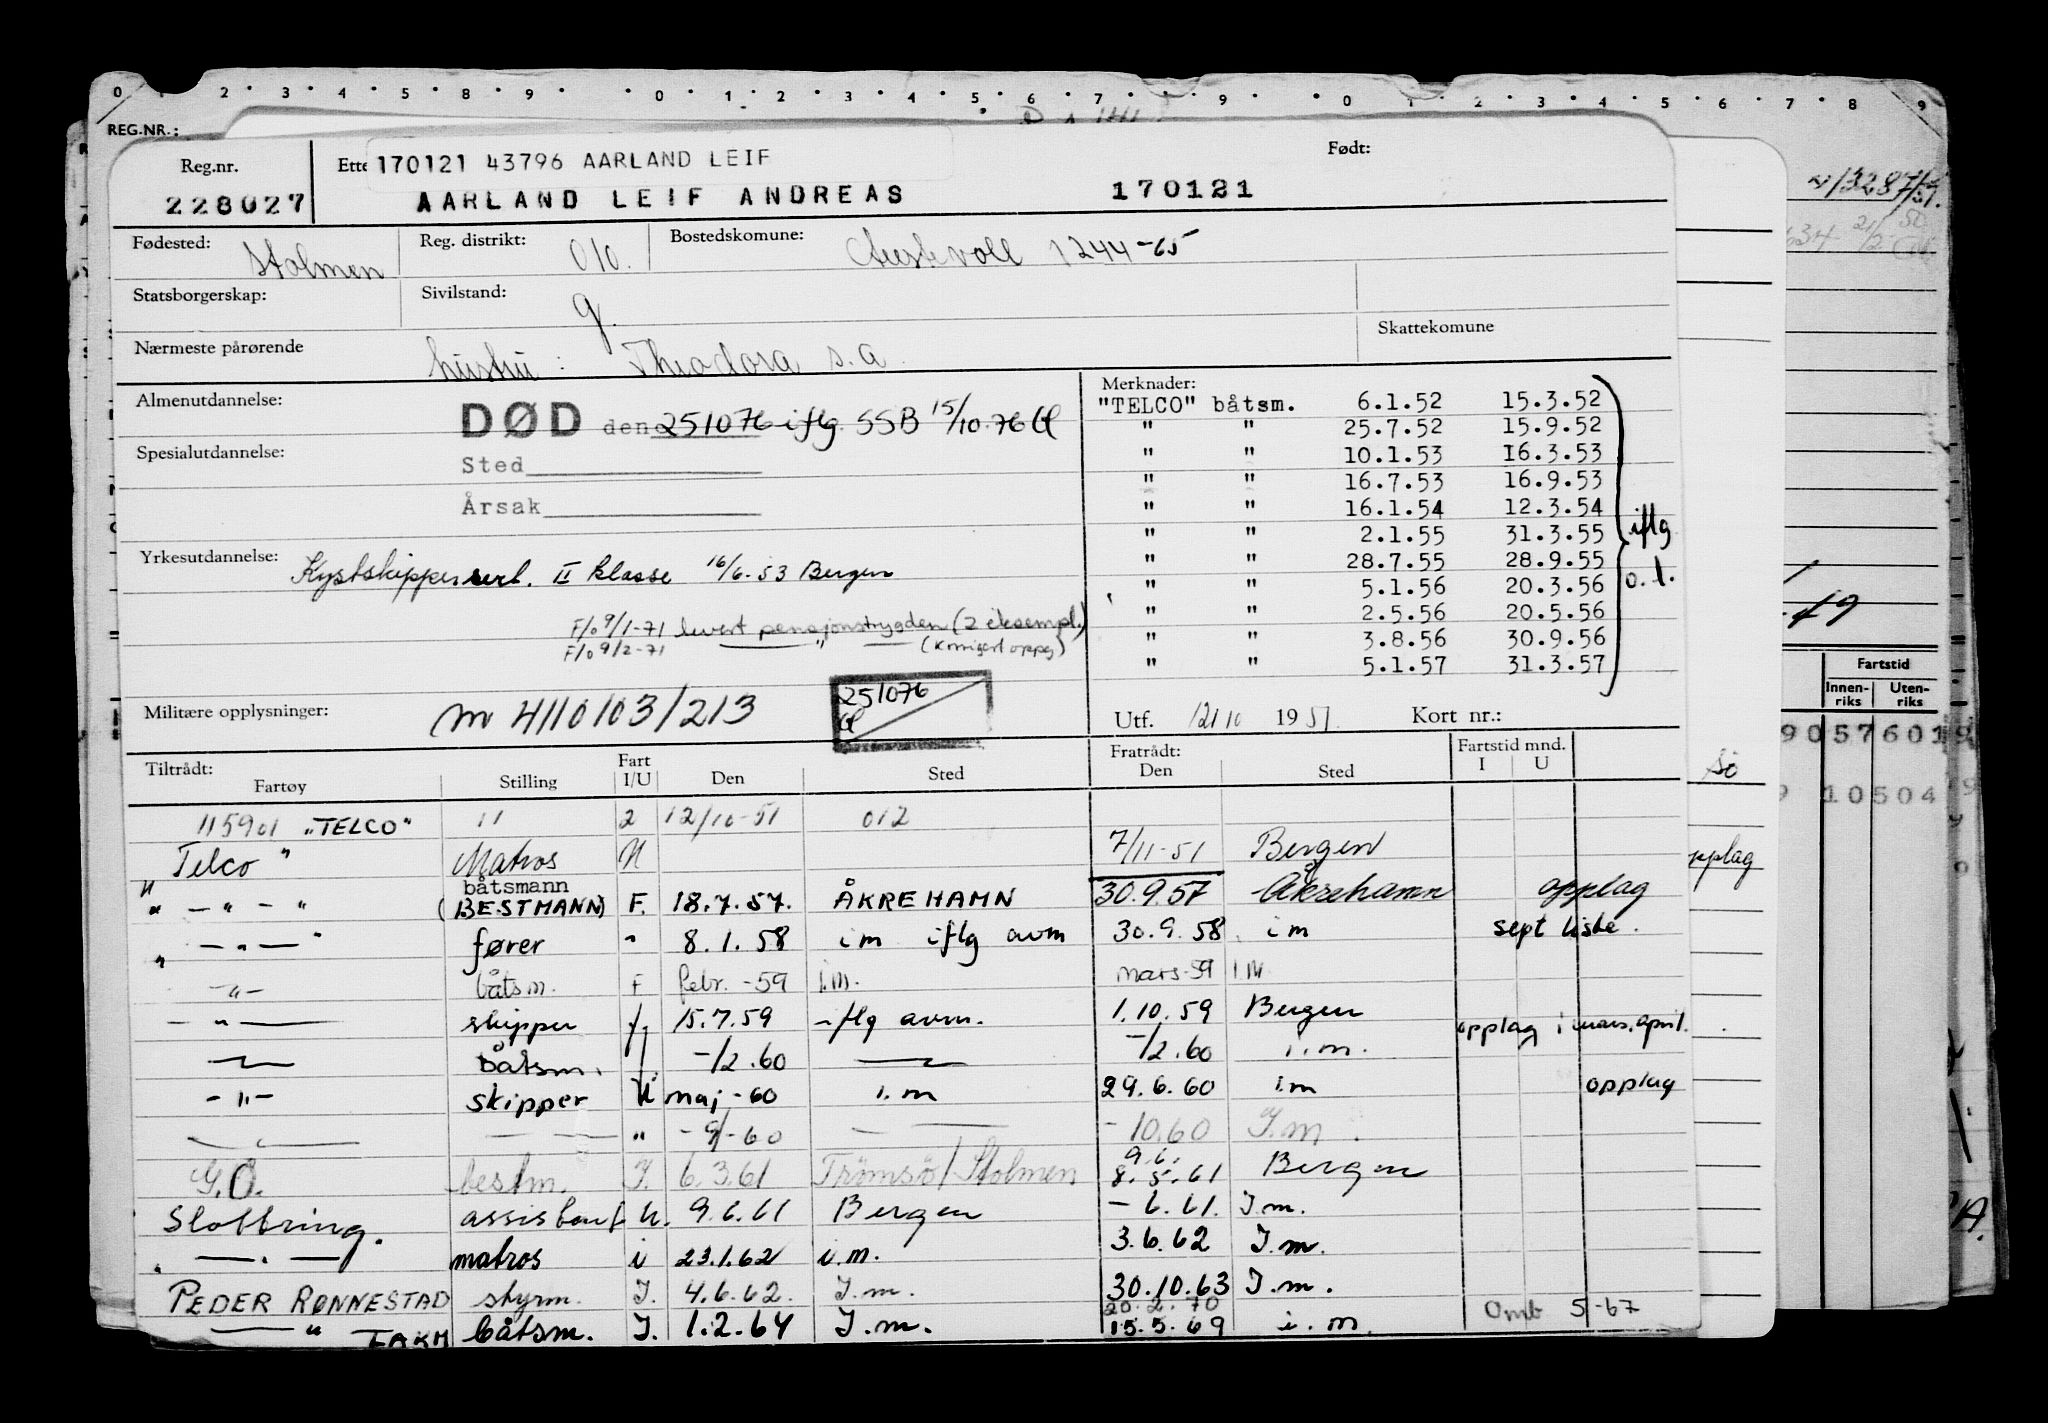 0 1 2 3 4 5 8 9 0 1 2 3 4 5 6 7 9 0 1 2 3 4 5 6 7 8 9
REG.NR.:
Reg.nr. 170121 43796 AARLAND LEIF Født:
228027 AARLAND LEIF ANDREAS 170121
Fødested: Stolmen Reg. distrikt: 010. Bostedskomune: Austevoll 1244-65
Statsborgerskap: Sivilstand: g.
Nærmeste pårørende hustru: Theodora s.a. Skattekomune
Almenutdannelse:
DØD den 251076 iflg. SSB 15/10.76
Spesialutdannelse:
Sted
Årsak
Yrkesutdannelse: Kystskippersert. II klasse 16/6-53 Bergen
F/o 9/1-71 levert pensjonstrygden (2 eksempl.)
F/o 9/2-71 " (korrigert oppg)
Militære opplysninger: m 4110103/213
251076
Merknader:
"TELCO" båtsm. 6.1.52 15.3.52
" " 25.7.52 15.9.52
" " 10.1.53 16.3.53
" " 16.7.53 16.9.53
" " 16.1.54 12.3.54
" " 2.1.55 31.3.55
" " 28.7.55 28.9.55
" " 5.1.56 20.3.56
" " 2.5.56 20.5.56
" " 3.8.56 30.9.56
" " 5.1.57 31.3.57
iflg
o.l.
Utf. 12/10 1951. Kort nr.:
Tiltrådt: Fartøy Stilling Fart I/U Den Sted Fratrådt: Den Sted Fartstid mnd. I U
115901 "TELCO" 11 2 12/10-51 012
Telco " Matros U 7/11-51 Bergen
" - " - " båtsmann (BESTMANN) F. 18.7.57. ÅKREHAMN 30.9.57 Åkrehamn opplag
" - " - " fører " 8.1.58 i m iflg avm 30.9.58. i m sept liste.
- " - båtsm. F febr.-59 i.m. mars-59 i.m.
- " - skipper f 15.7.59 iflg avm. 1.10.59 Bergen opplag i mars, april.
båtsm. -/2.60 -/2.60 i.m.
- " - skipper U maj-60 i.m 29.6.60 i.m opplag
" -9/-60 - 10.60 I.m.
G.O. bestm. I. 6.3.61 Tromsö/Stolmen 9.6. 8.5.61 Bergen
Slottring. assistent U. 9.6.61 Bergen - 6.61. I.m.
matros i 23.1.62 i.m. 3.6.62 I.m.
PEDER RØNNESTAD styrm. I. 4.6.62. I.m. 30.10.63 I.m.
" båtsm. I. 1.2.64 I.m. 20.2.70 15.5.69 i.m. Omb 5-67
-49
Fartstid
Innen-riks Uten-riks
9057601
10504